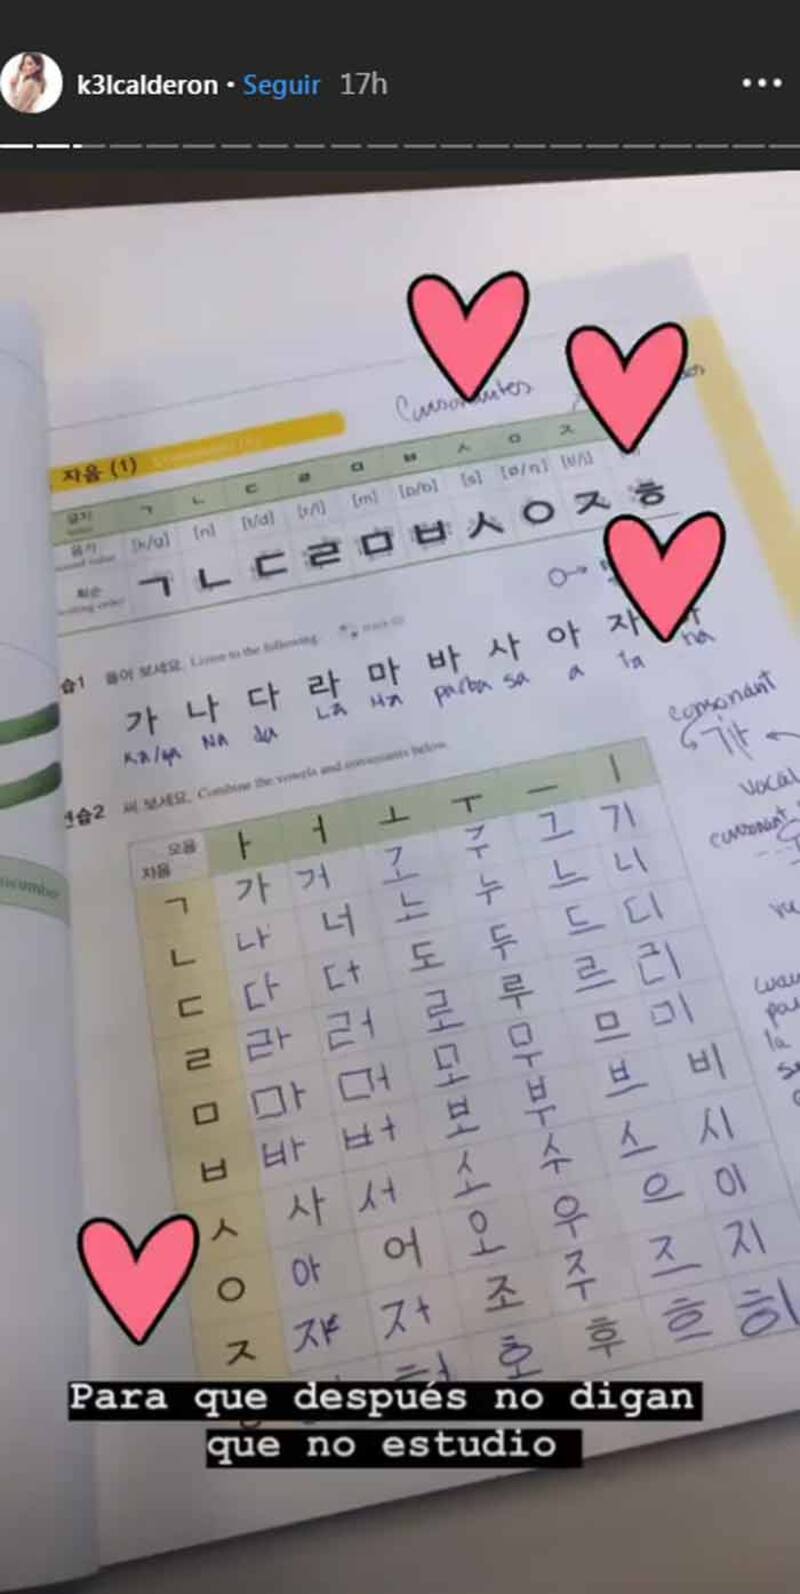 k3lcalderon • Seguir 17h
Consonantes
자음 (1)
글자 ㄱ ㄴ ㄷ ㄹ ㅁ ㅂ ㅅ ㅇ ㅈ
음가 [k/g] [n] [t/d] [r/l] [m] [p/b] [s] [ø/ŋ]
획순 ㄱ ㄴ ㄷ ㄹ ㅁ ㅂ ㅅ ㅇ ㅈ ㅎ
습1 들어 보세요. Listen to the following.
가 나 다 라 마 바 사 아 자
Ka/ga Na da La Ma pa/ba sa a ha
consonant
연습2 써 보세요. Combine the vowels and consonants below.
vocal
consonant
모음 ㅏ ㅓ ㅗ ㅜ ㅡ ㅣ
자음
ㄱ 가 거 고 구 그 기
ㄴ 나 너 노 누 느 니
ㄷ 다 더 도 두 드 디
ㄹ 라 러 로 루 르 리
ㅁ 마 머 모 무 므 미
ㅂ 바 버 보 부 브 비
ㅅ 사 서 소 수 스 시
ㅇ 아 어 오 우 으 이
ㅈ 자 저 조 주 즈 지
호 후 흐 히
Para que después no digan
que no estudio